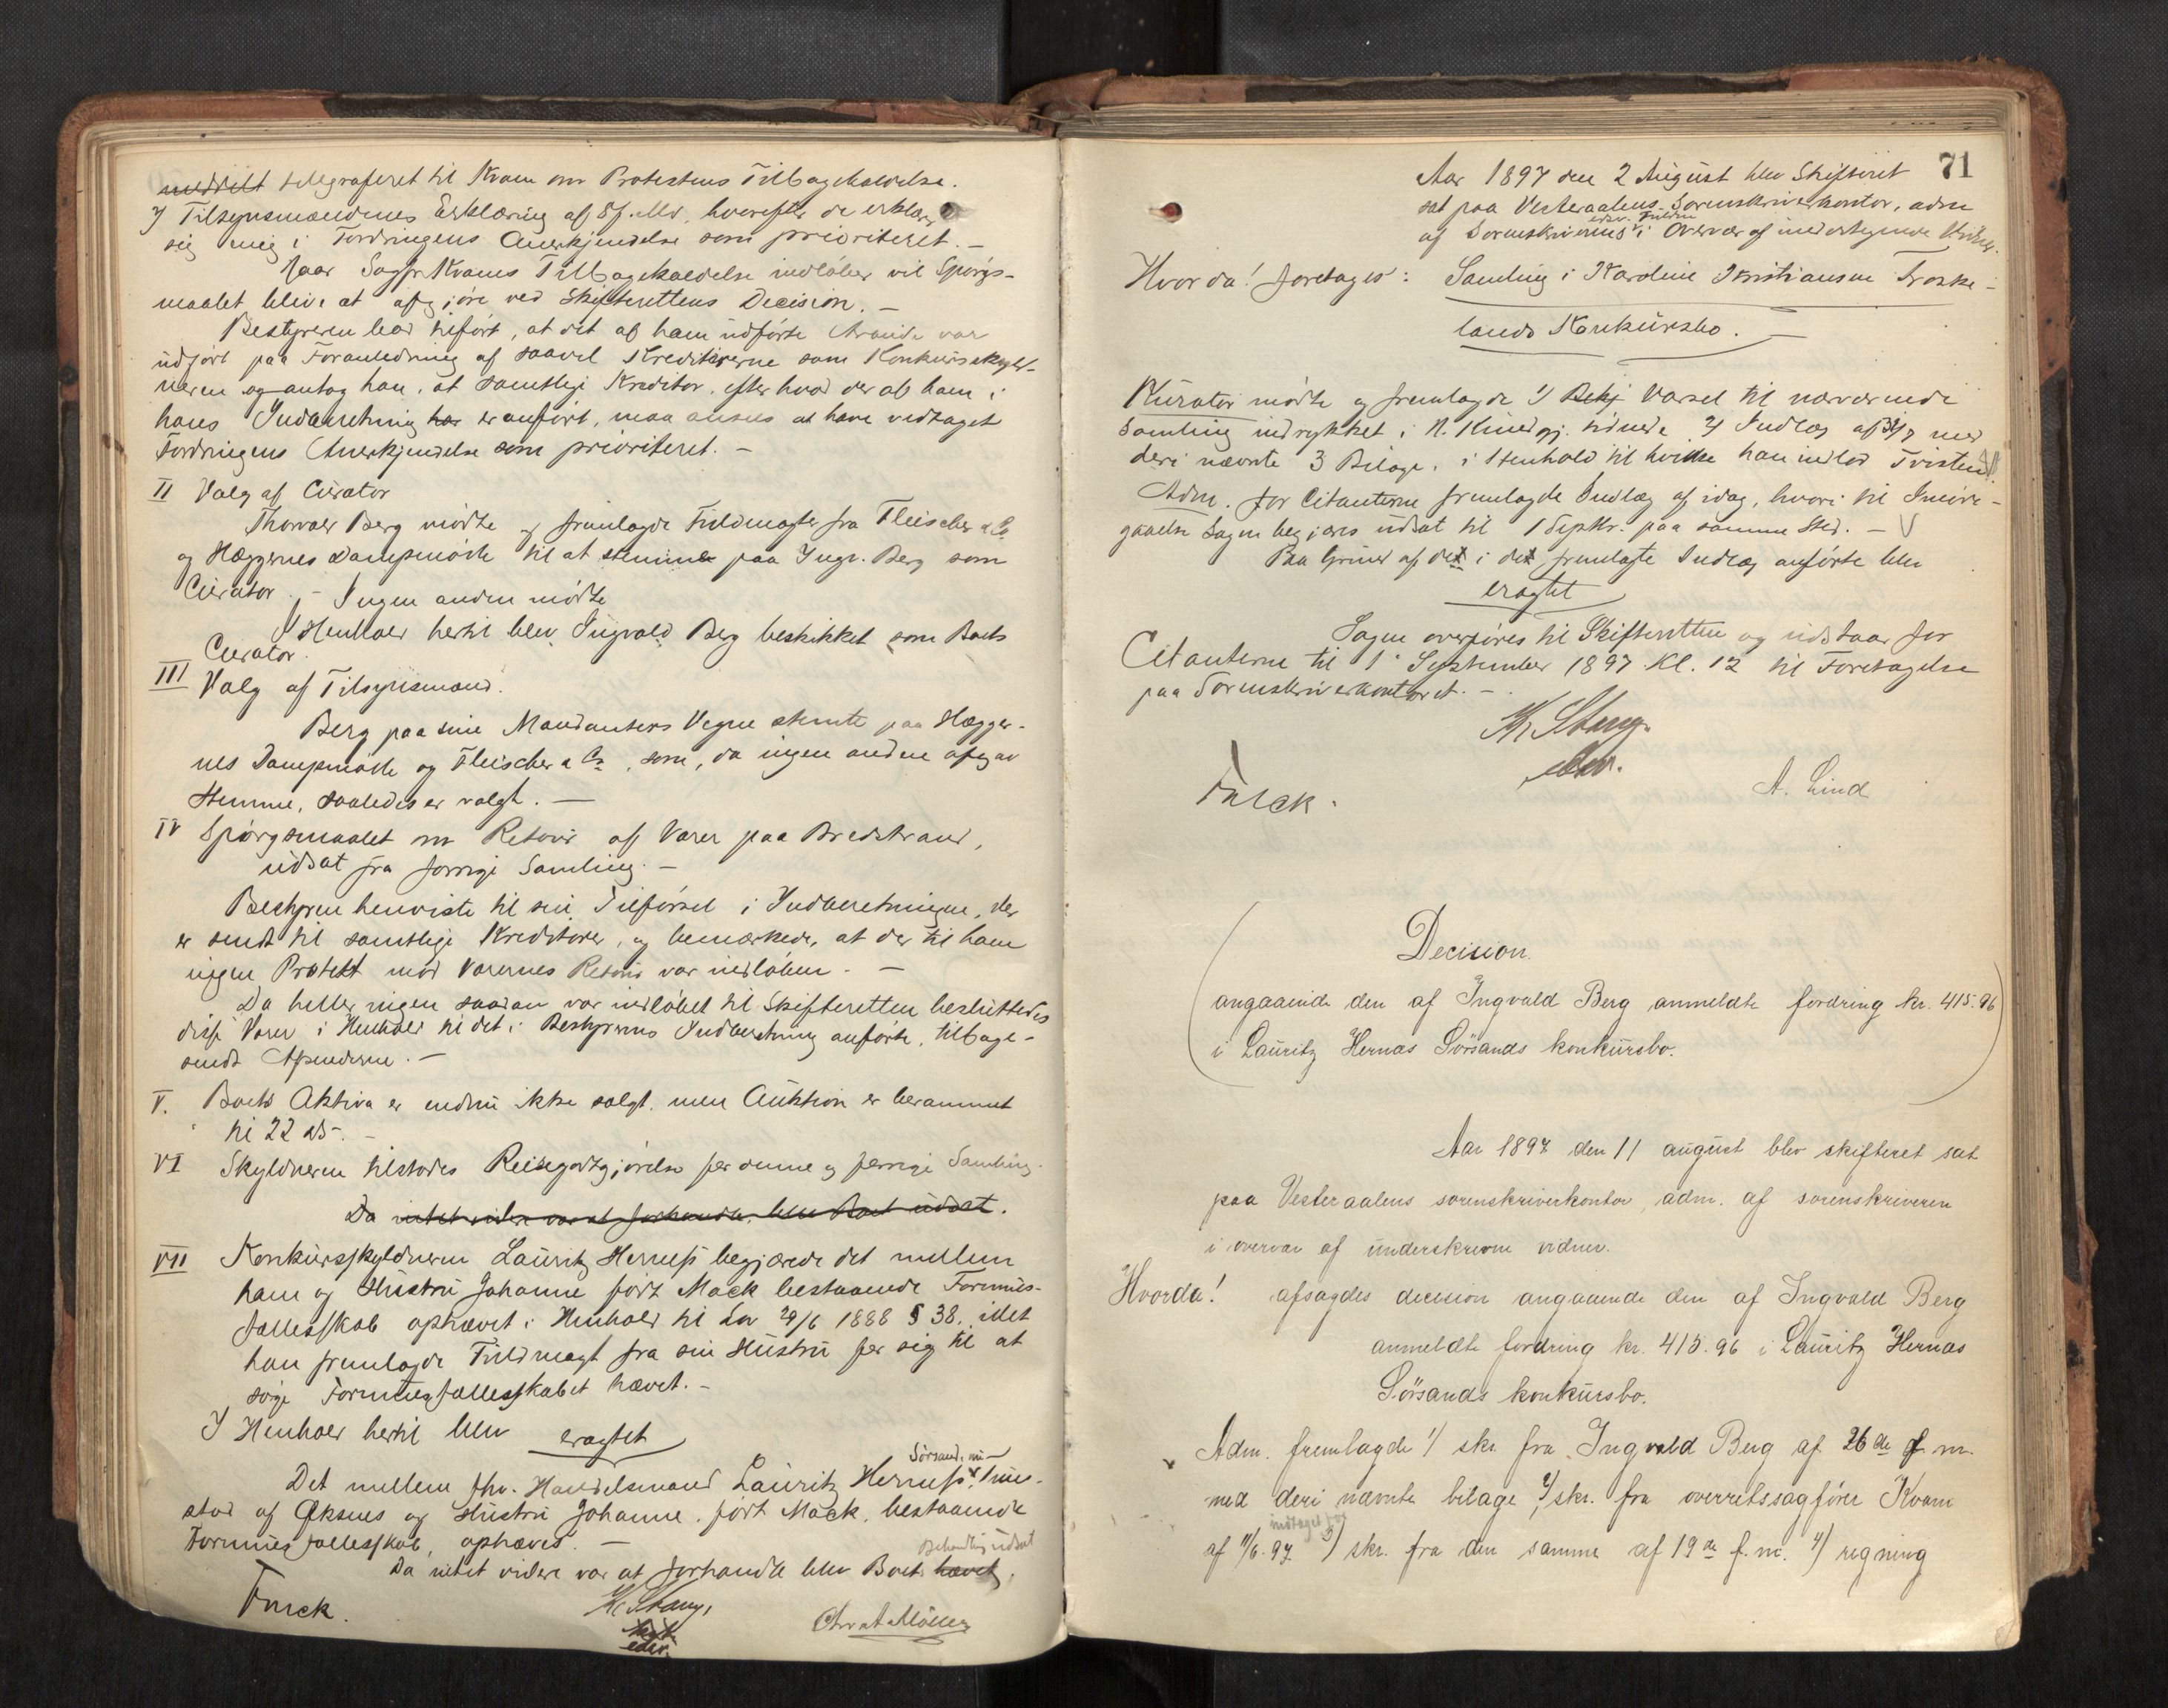 meddelt telegraferet til Kvam om Protestens Tilbagekaldelse.
2) Tilsynsmændenes Erklæring af 8 f. Md., hvorefter de erklærer
sig enig i Fordringens Anerkjendelse som prioriteret. –
Naar Sagf. Kvams Tilbagekaldelse indløber vil Spørgs-
maalet blive at afgjøre ved Skifterettens Decision. –
Bestyreren lod tilført, at det af ham udførte Arbeide var
udført paa Foranledning af saavel Kreditorerne som Konkursskyld-
neren og antog han, at samtlige Kreditor. efter hvad der af ham i
hans Indberetning har er anført, maa ansees at have vedtaget
Fordringens Anerkjendelse som prioriteret. –
II Valg af Curator
Thorvald Berg mødte og fremlagde Fuldmagter fra Fleischer & Co
og Hæggernes Dampmølle til at stemme paa Ingv. Berg som
Curator. – Ingen anden mødte
I Henhold hertil blev Ingvald Berg beskikket som Boets
Curator.
III Valg af Tilsynsmænd.
Berg paa sine Mandanters Vegne stemte paa Hægger-
nes Dampmølle og Fleischer & Co, som, da ingen andre afgav
Stemme, saaledes er valgt. –
IV Spørgsmaalet om Retour af Varer paa Bredstrand,
udsat fra forrige Samling. –
Bestyreren henviste til sin Tilførsel i Indberetningen, der
er sendt til samtlige Kreditorer, og bemærkede, at der til ham
ingen Protest mod Varernes Retour var indløben. –
Da heller ingen saadan var indløbet til Skifteretten besluttedes
disse Varer i Henhold til det i Bestyrerens Indberetning anførte, tilbage-
sendt Afsenderne. –
V. Boets Aktiva er endnu ikke solgt, men Auktion er berammet
til 22 ds. –
VI Skyldneren tilstodes Reisegodtgjørelse for denne og forrige Samling.
Da intet videre var at forhandle, blev Boet udsat.
VII Konkursskyldneren Lauritz Hernes begjærede det mellem
ham og Hustru Johanne født Mack bestaaende Formues-
fællesskab ophævet i Henhold til Lov 29/6 1888 § 38, idet
han fremlagde Fuldmagt fra sin Hustru for sig til at
søge Formuesfællesskabet hævet. –
I Henhold hertil blev eragtet
Sørsand, nu
Det mellem fhv. Handelsmand Lauritz Hernes, Tines-
stad af Øksnes og Hustru Johanne, født Mack, bestaaende
Formuesfællesskab, ophæves. –
Behandling udsat
Da intet videre var at forhandle blev Boets hævet.
Furck. K. Stang, edsv. Chr. A. Møller
71
Aar 1897 den 2 August blev Skifteret
sat paa Vesteraalens Sorenskriverkontor, adm
edsv. Fuldm
af Sorenskriverens i Overvær af undertegnede Vidner.
Hvorda! foretages: Samling i Karoline Kristiansen Froske-
lands Konkursbo. –
Kurator mødte og fremlagde 1) Bekj Varsel til nærværende
Samling indrykket i N. Kundgj. tidende 2) Indlæg af 31/7 med
deri nævnte 3 Bilage, i Henhold til hvilke han indlod Tvisten
Adm. for Citanterne fremlagde Indlæg af idag, hvori til Imøde-
gaaelse Sagen begjæres udsat til 1 Septbr. paa samme Sted. –
Paa Grund af det i det fremlagte Indlæg anførte blev
eragtet
Sagen overføres til Skifteretten og udstaar for
Citanterne til 1. September 1897 Kl. 12 til Foretagelse
paa Sorenskriverkontoret. –
K. Stang.
edsv.
Furck. A. Lind
Decision.
angaaende den af Ingvald Berg anmeldte fordring kr. 415.96
i Lauritz Hernas Sörsands konkursbo.
Aar 1897 den 11 august blev skifteret sat
paa Vesteraalens sorenskriverkontor, adm. af sorenskriveren
i overvær af underskrevne vidner.
Hvorda! afsagdes decision angaaende den af Ingvald Berg
anmeldte fordring kr. 415.96 i Lauritz Hernas
Sörsands konkursbo.
Adm. fremlagde 1) skr. fra Ingvald Berg af 26de f. m.
med deri nævnte bilage, 2) skr. fra overretssagfører Kvam
indtaget
af 11/6. 97. 3) skr. fra den samme af 19de f. m. 4) regning